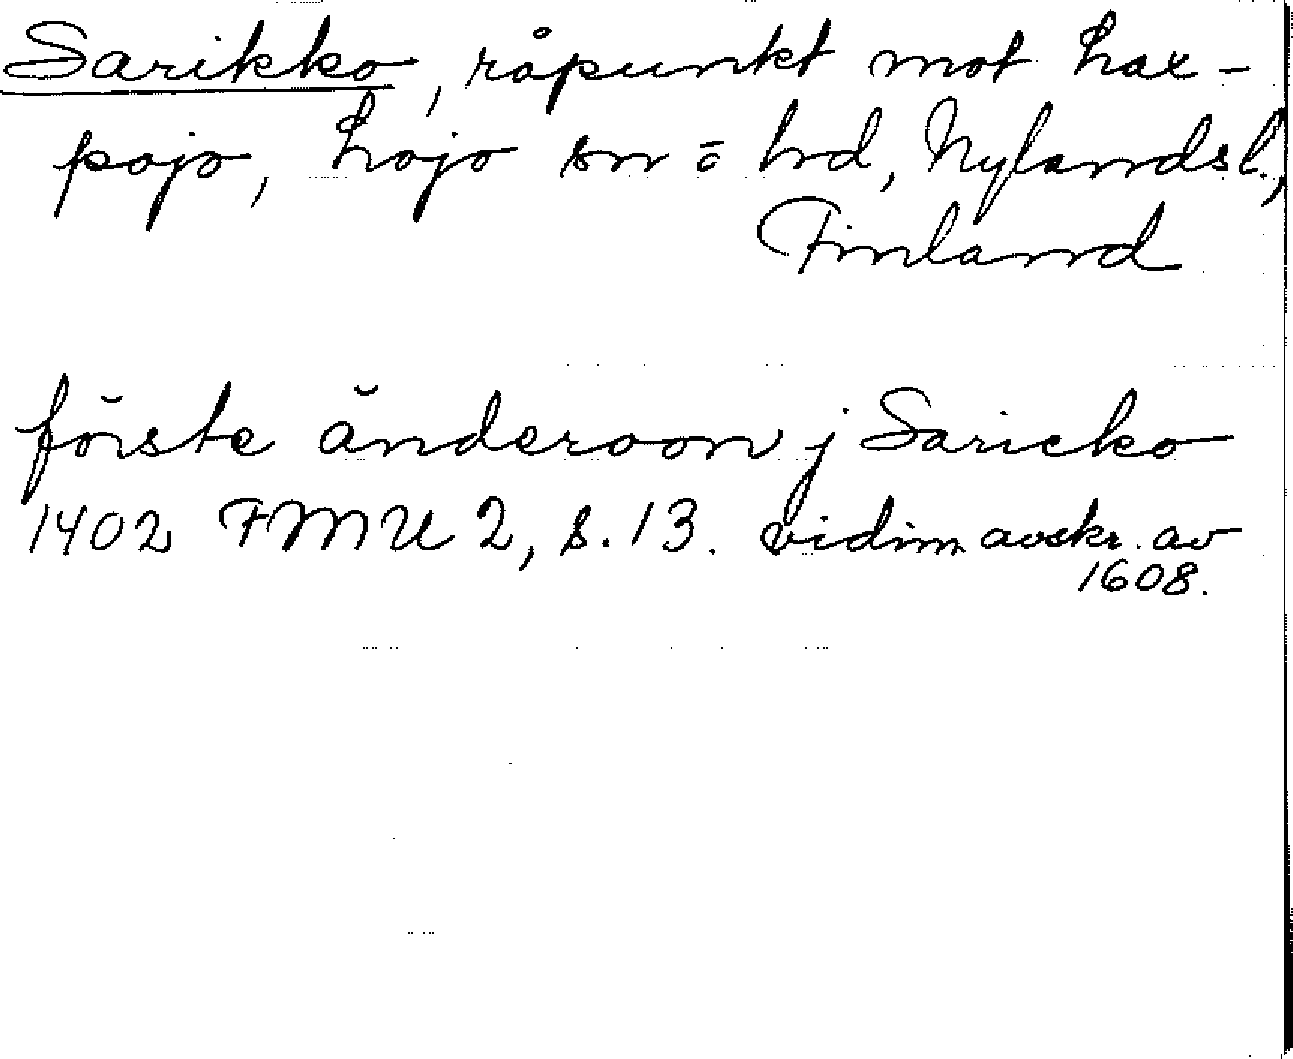 Sarikko, råpunkt mot Lax-
pojo, Lojo sn o hrd, Nylands l.,
Finland
förste änderoon j Saricko
1402 FMU 2, s. 13. vidim. avskr. av
1608.